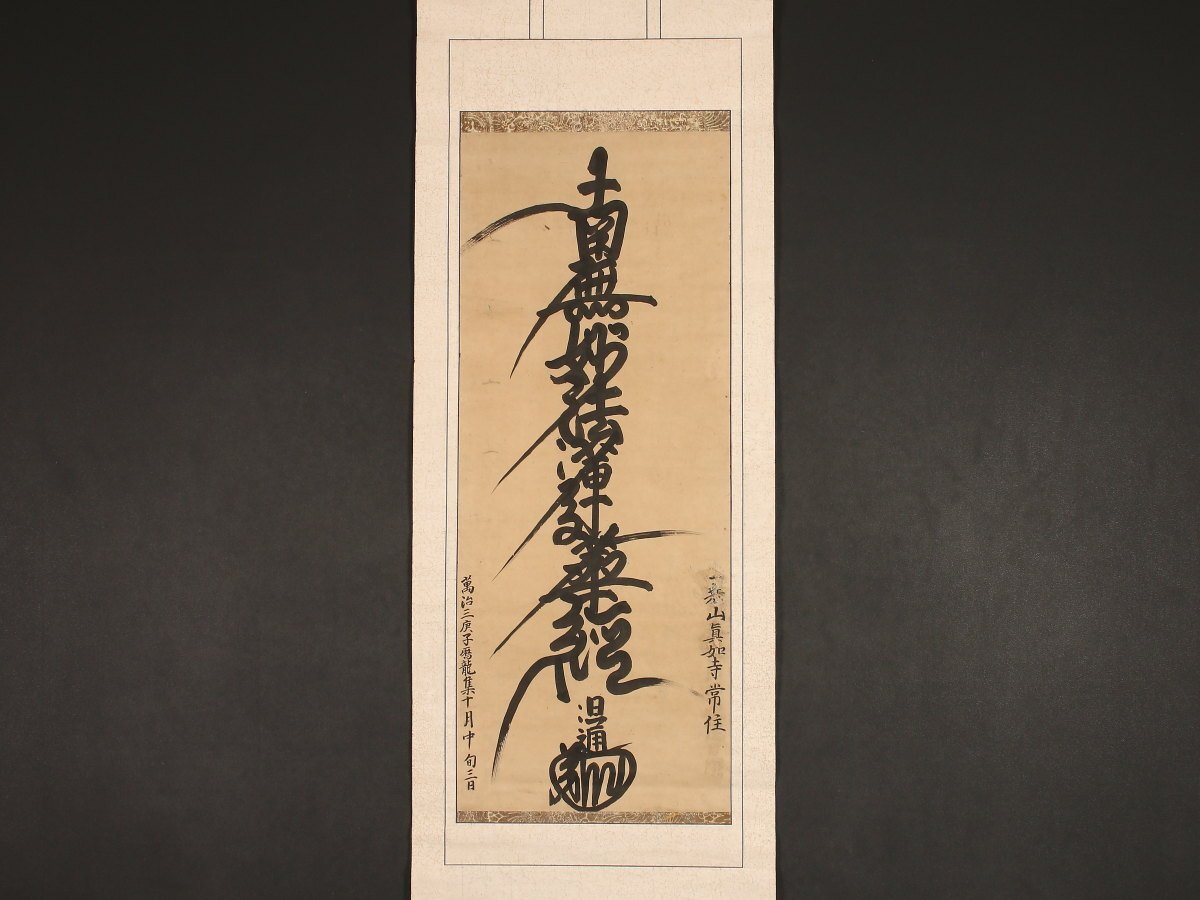 南無妙法蓮華經
日通
山眞如寺常住
萬治三庚子曆龍集十月中旬三日